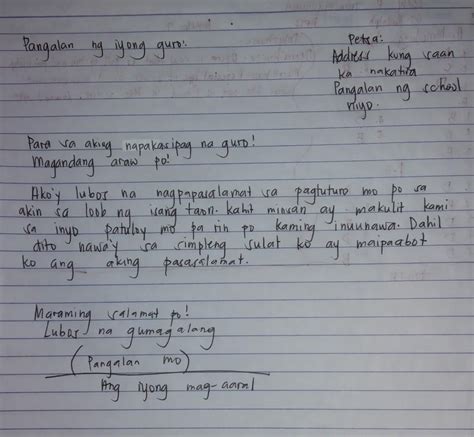 Pangalan ng iyong guro:
Petsa:
Address kung saan
ka nakatira
Pangalan ng school
niyo.
Para sa aking napakasipag na guro!
Magandang araw po!
Ako'y lubos na nagpapasalamat sa pagtuturo mo po sa
akin sa loob ng isang taon. kahit minsan ay makulit kami
sa inyo patuloy mo pa rin po kaming inuunawa. Dahil
dito nawa'y sa simpleng sulat ko ay maipaabot
ko ang aking pasasalamat.
Maraming salamat po!
Lubos na gumagalang
(Pangalan mo)
Ang iyong mag-aaral